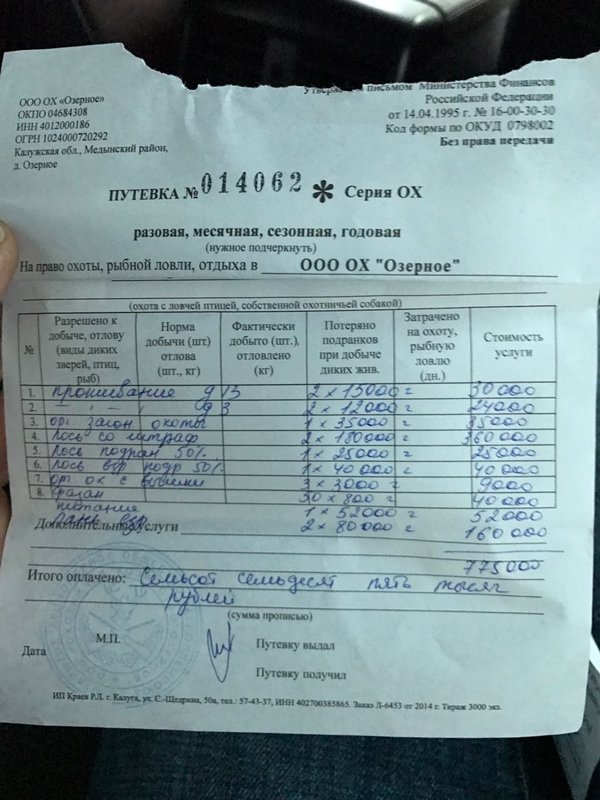 ООО ОХ «Озерное»
ОКПО 04684308
ИНН 4012000186
ОГРН 1024000720292
Калужская обл., Медынский район,
д. Озерное
письмом Министерства Финансов
Российской Федерации
от 14.04.1995 г. № 16-00-30-30
Код формы по ОКУД 0798002
Без права передачи
ПУТЕВКА № 014062 * Серия ОХ
разовая, месячная, сезонная, годовая
(нужное подчеркнуть)
На право охоты, рыбной ловли, отдыха в ООО ОХ "Озерное"
(охота с ловчей птицей, собственной охотничьей собакой)
№ Разрешено к добыче, отлову (виды диких зверей, птиц, рыб) Норма добычи (шт.) отлова (шт., кг) Фактически добыто (шт.), отловлено (кг) Потеряно подранков при добыче диких жив. Затрачено на охоту, рыбную ловлю (дн.) Стоимость услуги
1. проживание д/3 2 х 15000 = 30000
2. - " - д3 2 х 12000 = 24000
3. орг загон охоты 1 х 35000 = 35000
4. Лось со штраф 2 х 180000 = 360000
5. Лось подран 50% 1 х 25000 = 25000
6. Лось взр подр 50% 1 х 40000 = 40000
7. орг ох с вышки 3 х 3000 = 9000
8. фазан 50 х 800 = 40000
питание 1 х 52000 = 52000
Дополнительные услуги Лань взр 2 х 80000 = 160000
775000
Итого оплачено: Семьсот семьдесят пять тысяч
рублей
(сумма прописью)
М.П.
Дата
Путевку выдал
Путевку получил
ИП Краев Р.Л. г. Калуга, ул. С.-Щедрина, 50а, тел.: 57-43-37, ИНН 402700385865. Заказ Л-6453 от 2014 г. Тираж 3000 экз.